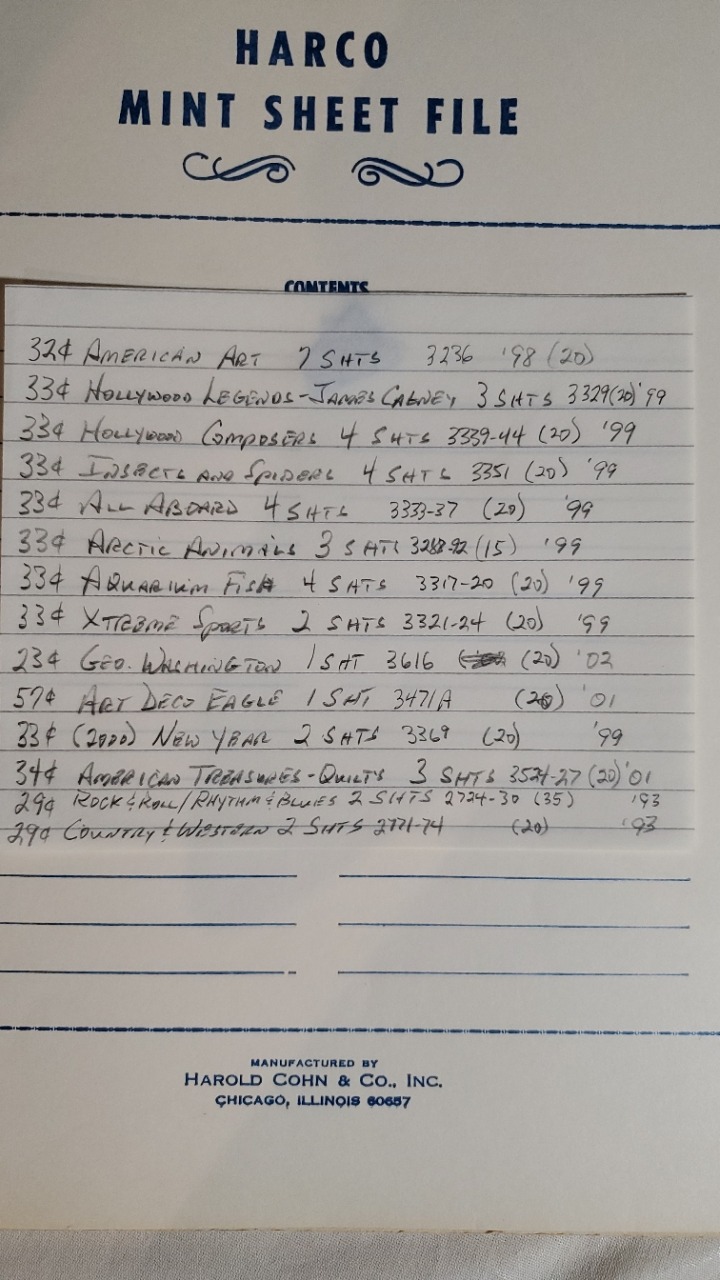 HARCO
MINT SHEET FILE
CONTENTS
32¢ AMERICAN ART 7 SHTS 3236 '98 (20)
33¢ HOLLYWOOD LEGENDS-JAMES CAGNEY 3 SHTS 3329(20)'99
33¢ HOLLYWOOD COMPOSERS 4 SHTS 3339-44 (20) '99
33¢ INSECTS AND SPIDERS 4 SHTS 3351 (20) '99
33¢ ALL ABOARD 4 SHTS 3333-37 (20) '99
33¢ ARCTIC ANIMALS 3 SHTS 3288-92 (15) '99
33¢ AQUARIUM FISH 4 SHTS 3317-20 (20) '99
33¢ XTREME SPORTS 2 SHTS 3321-24 (20) '99
23¢ GEO. WASHINGTON 1 SHT 3616 (20) '02
57¢ ART DECO EAGLE 1 SHT 3471A (20) '01
33¢ (2000) NEW YEAR 2 SHTS 3369 (20) '99
34¢ AMERICAN TREASURES-QUILTS 3 SHTS 3524-27 (20) '01
29¢ ROCK & ROLL/RHYTHM & BLUES 2 SHTS 2724-30 (35) '93
29¢ COUNTRY & WESTERN 2 SHTS 2771-74 (20) '93
MANUFACTURED BY
HAROLD COHN & CO., INC.
CHICAGO, ILLINOIS 60657